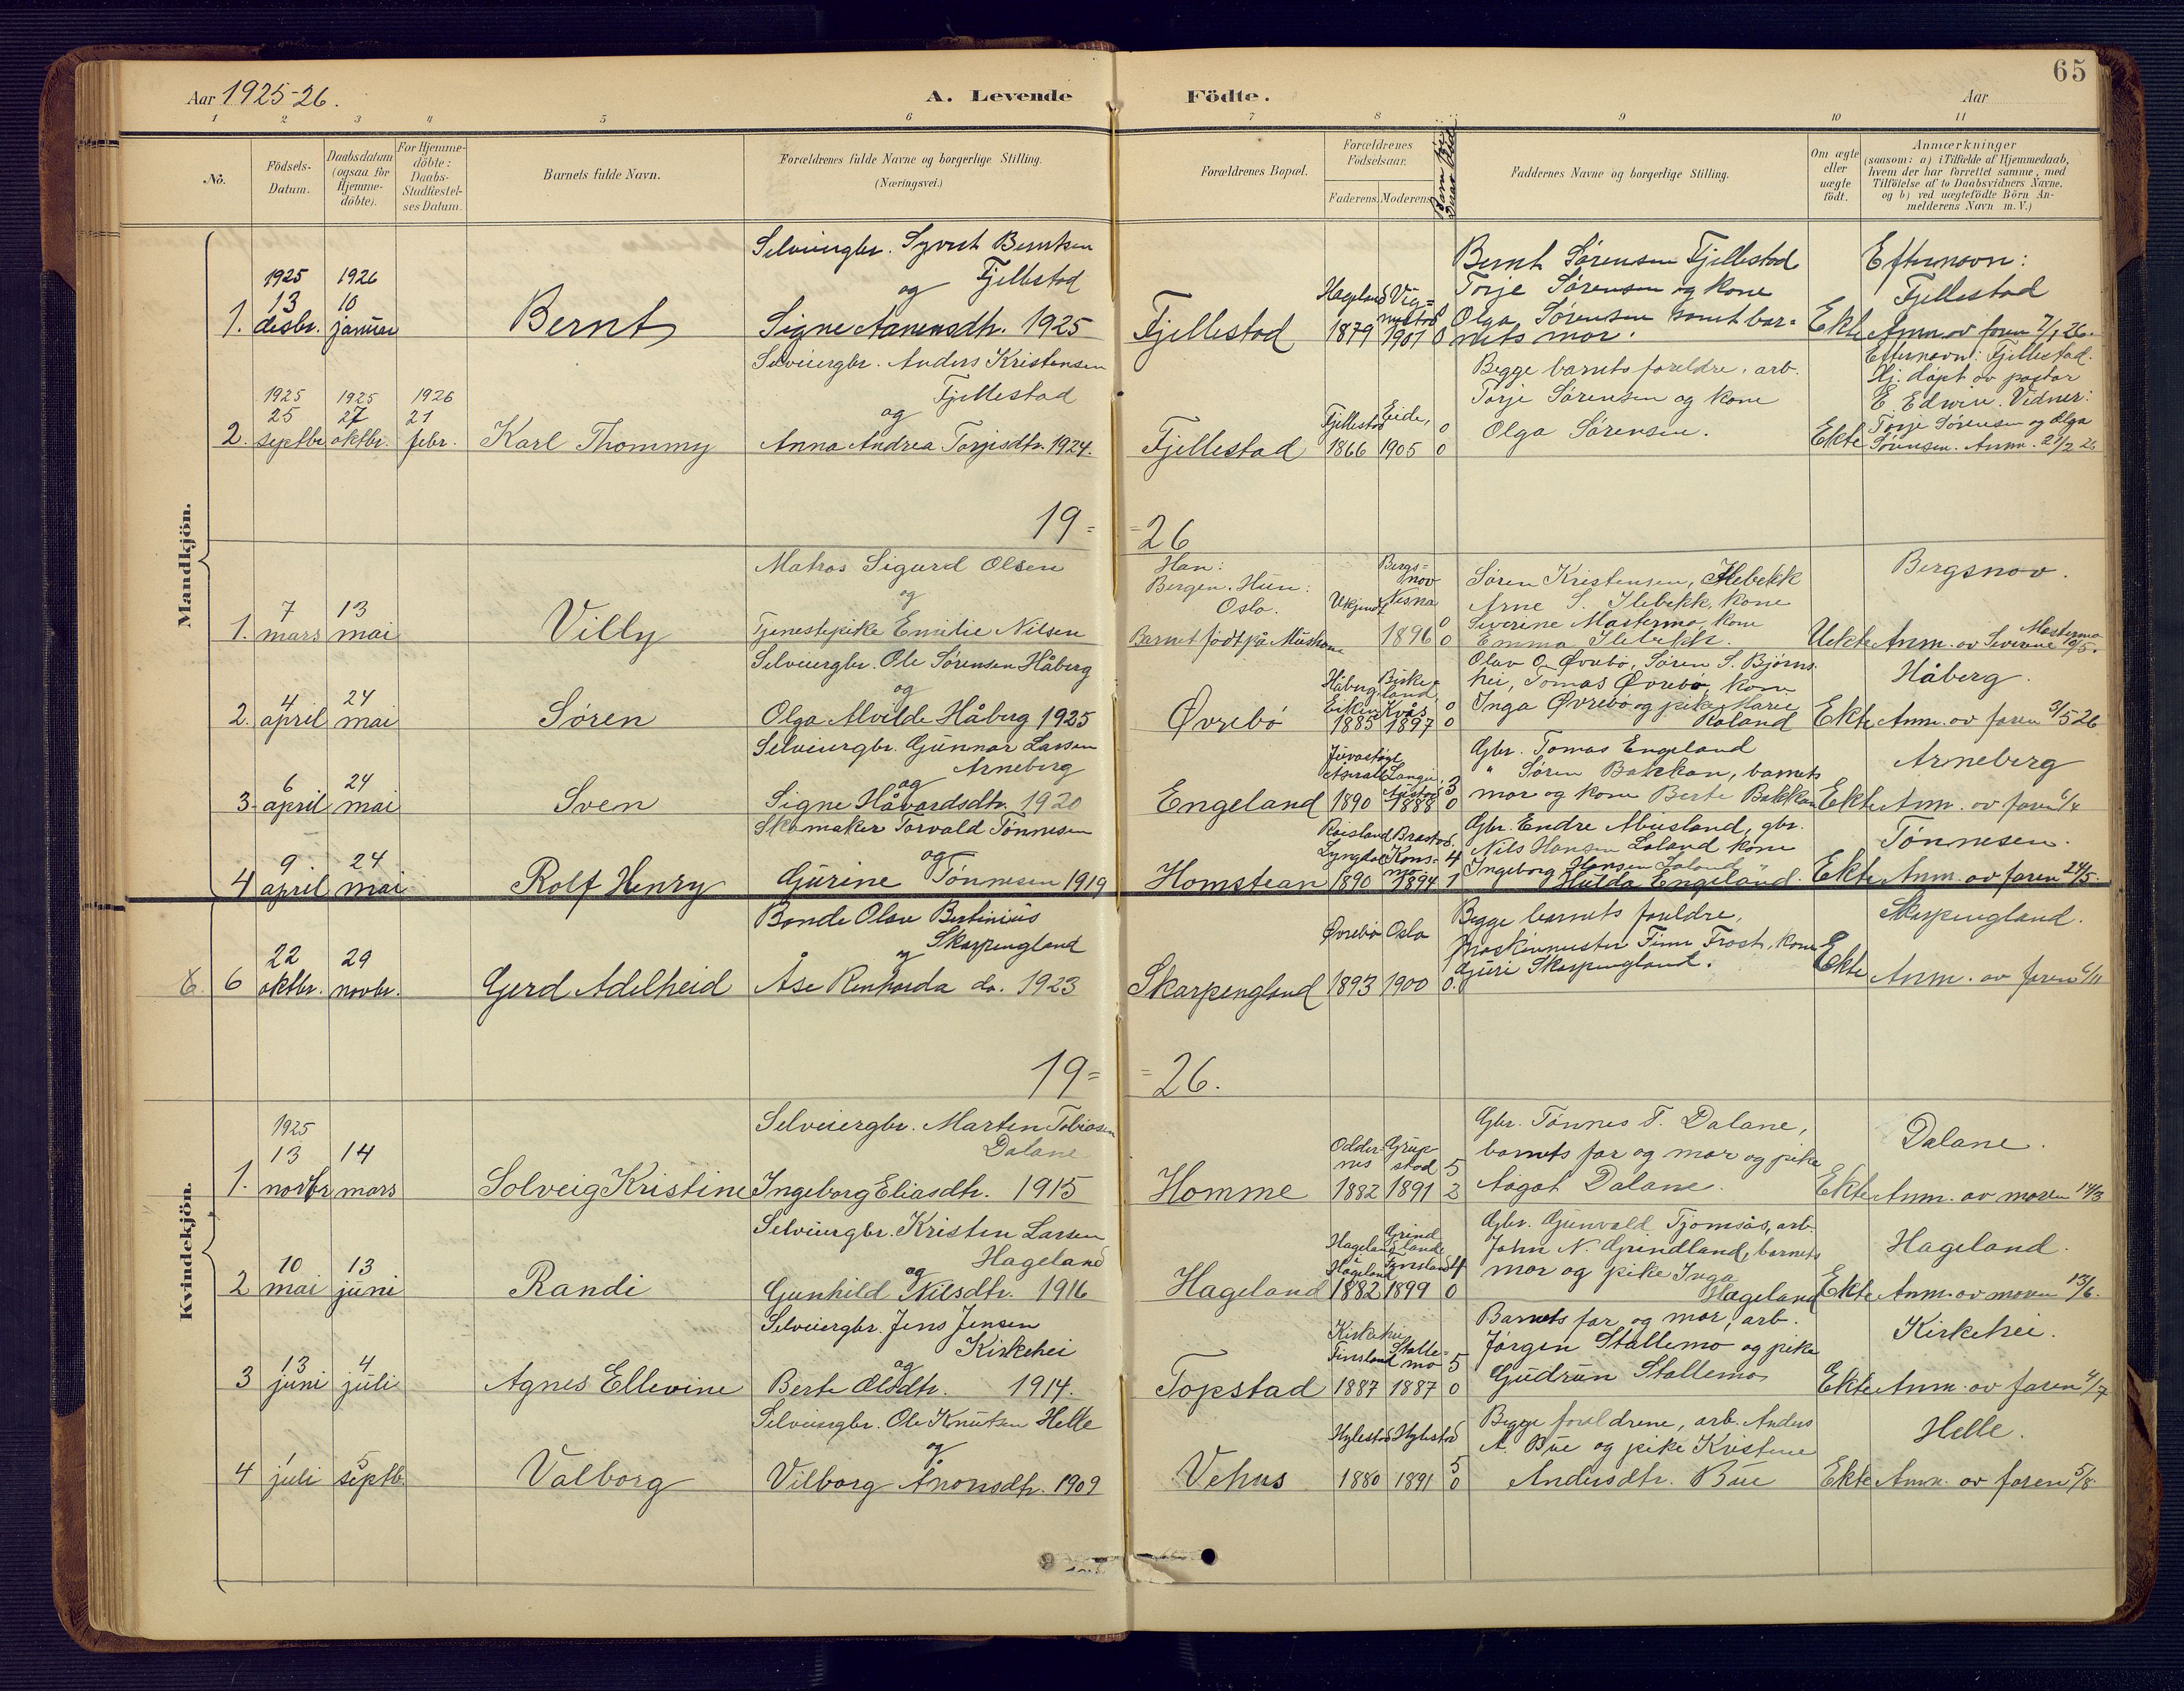 65
Aar 1925-26.
A. Levende Födte.
Aar
1 2 3 4 5 6 7 8 9 10 11
No.
Födsels-Datum.
Daabsdatum (ogsaa for Hjemme-döbte).
For Hjemme-döbte: Daabs-Stadfæstel-ses Datum.
Barnets fulde Navn.
Forældrenes fulde Navne og borgerlige Stilling.
(Næringsvei.)
Forældrenes Bopæl.
Forældrenes Födselsaar.
Faderens. Moderens.
Faddernes Navne og borgerlige Stilling.
Om ægte eller uægte födt.
Anmærkninger
(saasom: a) i Tilfælde af Hjemmedaab,
hvem der har forrettet samme, med
Tilföielse af to Daabsvidners Navne,
og b) ved uægtefödte Börn An-
melderens Navn m. V.)
Mandkjön.
1. 1925 13 desbr.
1926 10 januar
Bernt
Selveiergbr. Syvert Berntsen
Fjellestad
og
Signe Aanensdtr. 1925
Fjellestad
Hageland 1879
1901
0
Bernt Sørensen Fjellestad
Torje Sørensen og kone
Olga Sørensen samt bar-
nets mor.
Ekte
Efternavn:
Fjellestad
Anm. av faren 7/1 26.
2. 1925 25 septbr.
1925 27 oktbr.
1926 21 febr.
Karl Thommy
Selveiergbr. Anders Kristensen
Fjellestad
og
Anna Andrea Torjisdtr. 1924.
Fjellestad
Fjellestad 1866
Eide, 1905
0
0
Begge barnets foreldre, arb.
Torje Sørensen og kone
Olga Sørensen.
Ekte
Efternavn: Fjellestad.
Hj. døpt av pastor
E. Edwin. Vidner:
Torje Sørensen og Olga
Sørensen. Anm. 21/2 26
19= =26
1. 7 mars
13 mai
Villy
Matros Sigurd Olsen
og
Tjenestepike Emilie Nilsen
Han:
Bergen. Hun:
Oslo.
Barnet født på
Ukjendt
Bergs=
nov
Nesna
1896
0
0
Søren Kristensen, Ilebekk
Arne S. Ilebekk, kone
Severine Mostermo, kone
Emma Ilebekk.
Uekte
Bergsnov.
Anm. av Severine Mostermo 10/5.
2. 4 april
24 mai
Søren
Selveiergbr. Ole Sørensen Håberg
og
Olga Alvilde Håberg 1925
Øvrebø
Håberg
Eiken
1885
Birke-
land
Kvås
1897
0
0
Olav O. Øvrebø, Søren S. Bjørns-
hei, Tomas Øvrebø, kone
Inga Øvrebø og pike Marie
Roland
Ekte
Håberg.
Anm. av faren 3/5 26
3. 6 april
24 mai
Sven
Selveiergbr. Gunnar Larsen
Arneberg
og
Signe Håvardsdtr. 1920
Engeland
1890
1888
3
0
Gbr. Tomas Engeland
" Søren Bakkan, barnets
mor og kone Berte Bakkan
Ekte
Arneberg
Anm. av faren 6/4
4 9 april
24 mai
Rolf Henry
Skomaker Torvald Tønnesen
og
Gurine Tønnesen 1919
Homstean
Røisland
Lyngdal
1890
Kons-
mo
1894
4
1
Gbr. Endre Abusland, gbr.
Nils Hansen Løland kone
Ingeborg Hansen Løland "
Hulda Engeland.
Ekte
Tønnesen.
Anm. av faren 24/5.
6. 6 22 oktbr.
29 novbr.
Gerd Adelheid
Bonde Olav Bertinius
Skarpengland
og
Åse do. 1923
Skarpengland
Øvrebø 1893
Oslo 1900
1
0.
Begge barnets foreldre,
maskinmester Finn Frost, kone
Guri Skarpengland.
Ekte
Skarpengland.
Anm. av faren 6/11
19= =26.
Kvindekjön.
1. 1925 13 novbr
14 mars
Solveig Kristine
Selveiergbr. Marten Tobiasen
Dalane
Ingeborg Eliasdtr. 1915
Homme
Odder-
nes
1882
Grup
stad
1891
5
2
Gbr. Tønnes T. Dalane,
barnets far og mor og pike
Aagot Dalane.
Ekte
Dalane.
Anm. av moren 14/3
2 10 mai
13 juni
Randi
Selveiergbr. Kristen Larsen
Hageland
og
Gunhild Nilsdtr. 1916
Hageland
Hageland
Hageland
1882
Grind
land
1899
4
0
Gbr. Gunvald Tjomsås, arb.
John N. Grindland, barnets
mor og pike Inga
Hageland
Ekte
Hageland.
Anm. av moren 13/6.
3 13 juni
4 juli
Agnes Ellevine
Selveiergbr. Jens Jensen
Kirkehei
og
Berte Olsdtr. 1914.
Topstad
Kirkehei
Finsland
1887
Stalle-
mo
1887
5
0
Barnets far og mor, arb.
Jørgen Stallemo og pike
Gudrun Stallemo
Ekte
Kirkehei.
Anm. av faren 4/7
4 1 juli
5 septb.
Valborg
Selveiergbr. Ole Knutsen Helle
og
Vilborg Ånonsdtr. 1909
Vehus
Hylestad 1880
Hylestad 1891
5
0
Begge foreldrene, arb. Anders
A. Bue og pike Kristine
Andersdtr. Bue
Ekte
Helle.
Anm. av faren 5/8